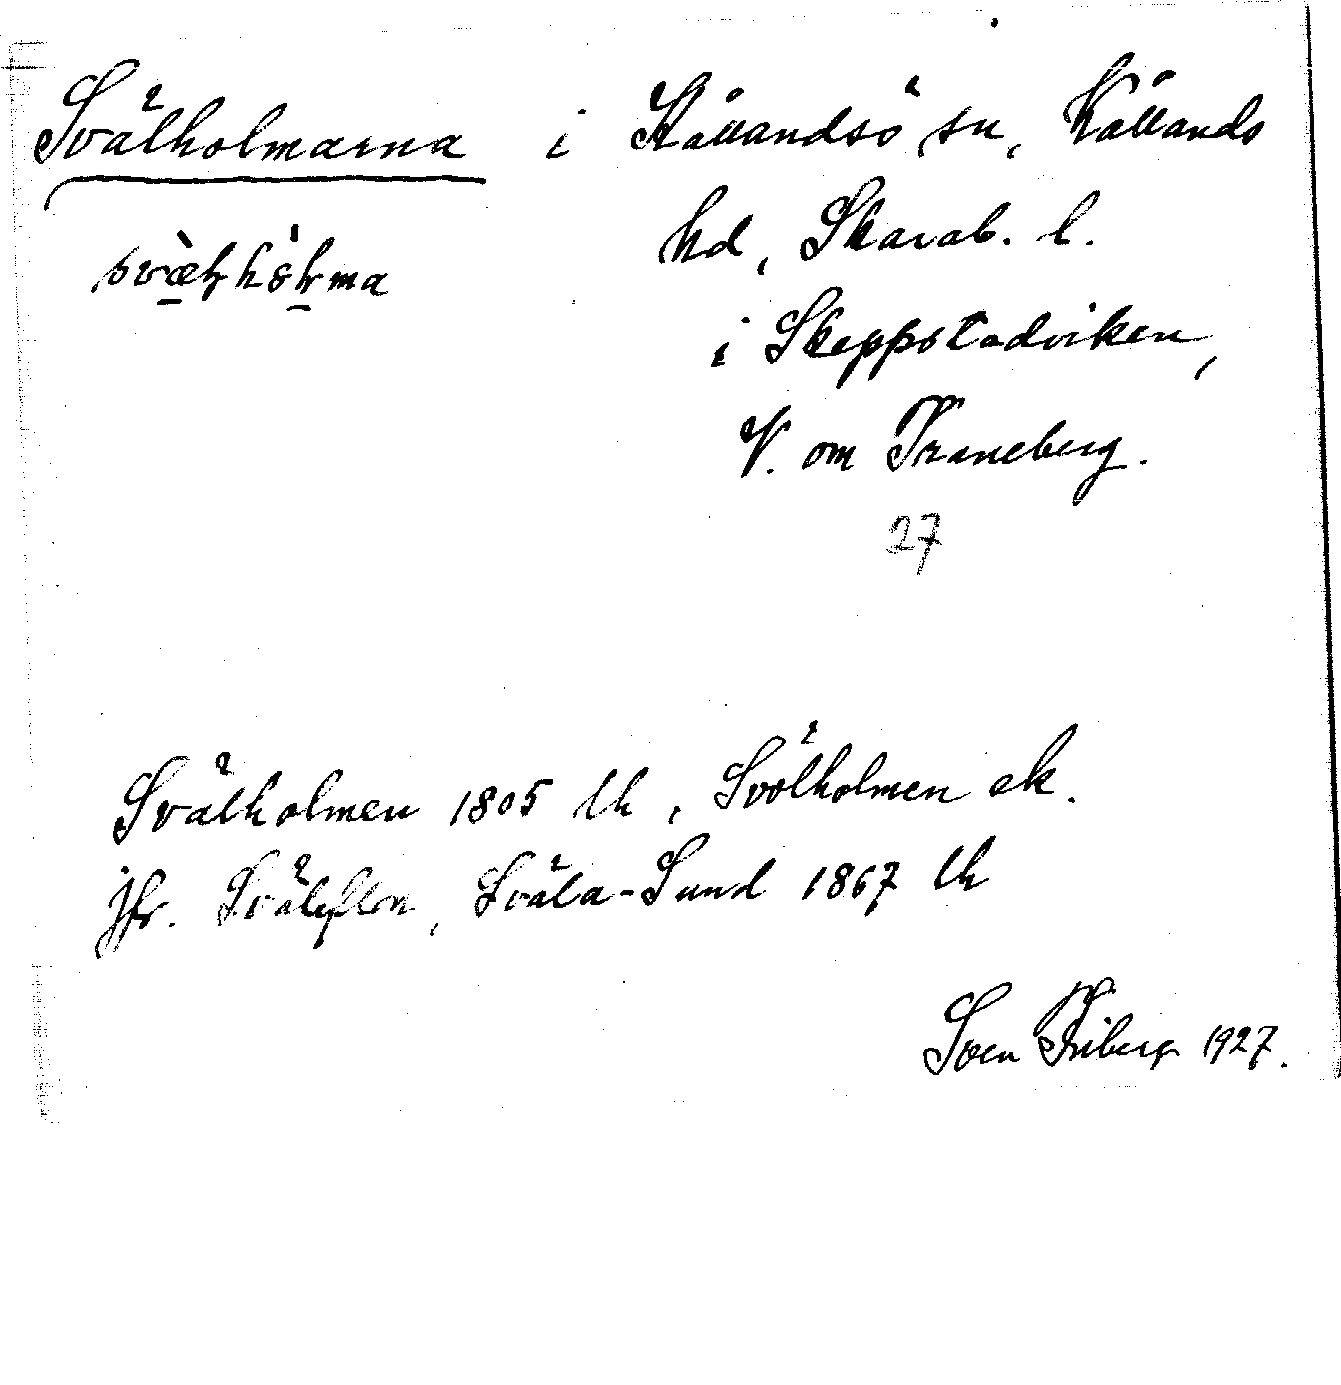 Svälholmarna i Kållandsö sn, Kållands
hd, Skarab. l.
i Skeppstadviken,
V. om Traneberg.
27
Svälholmen 1805 lk, Svölholmen ek.
jfr. Sväla-Sund 1867 lk
Sven Friberg 1927.